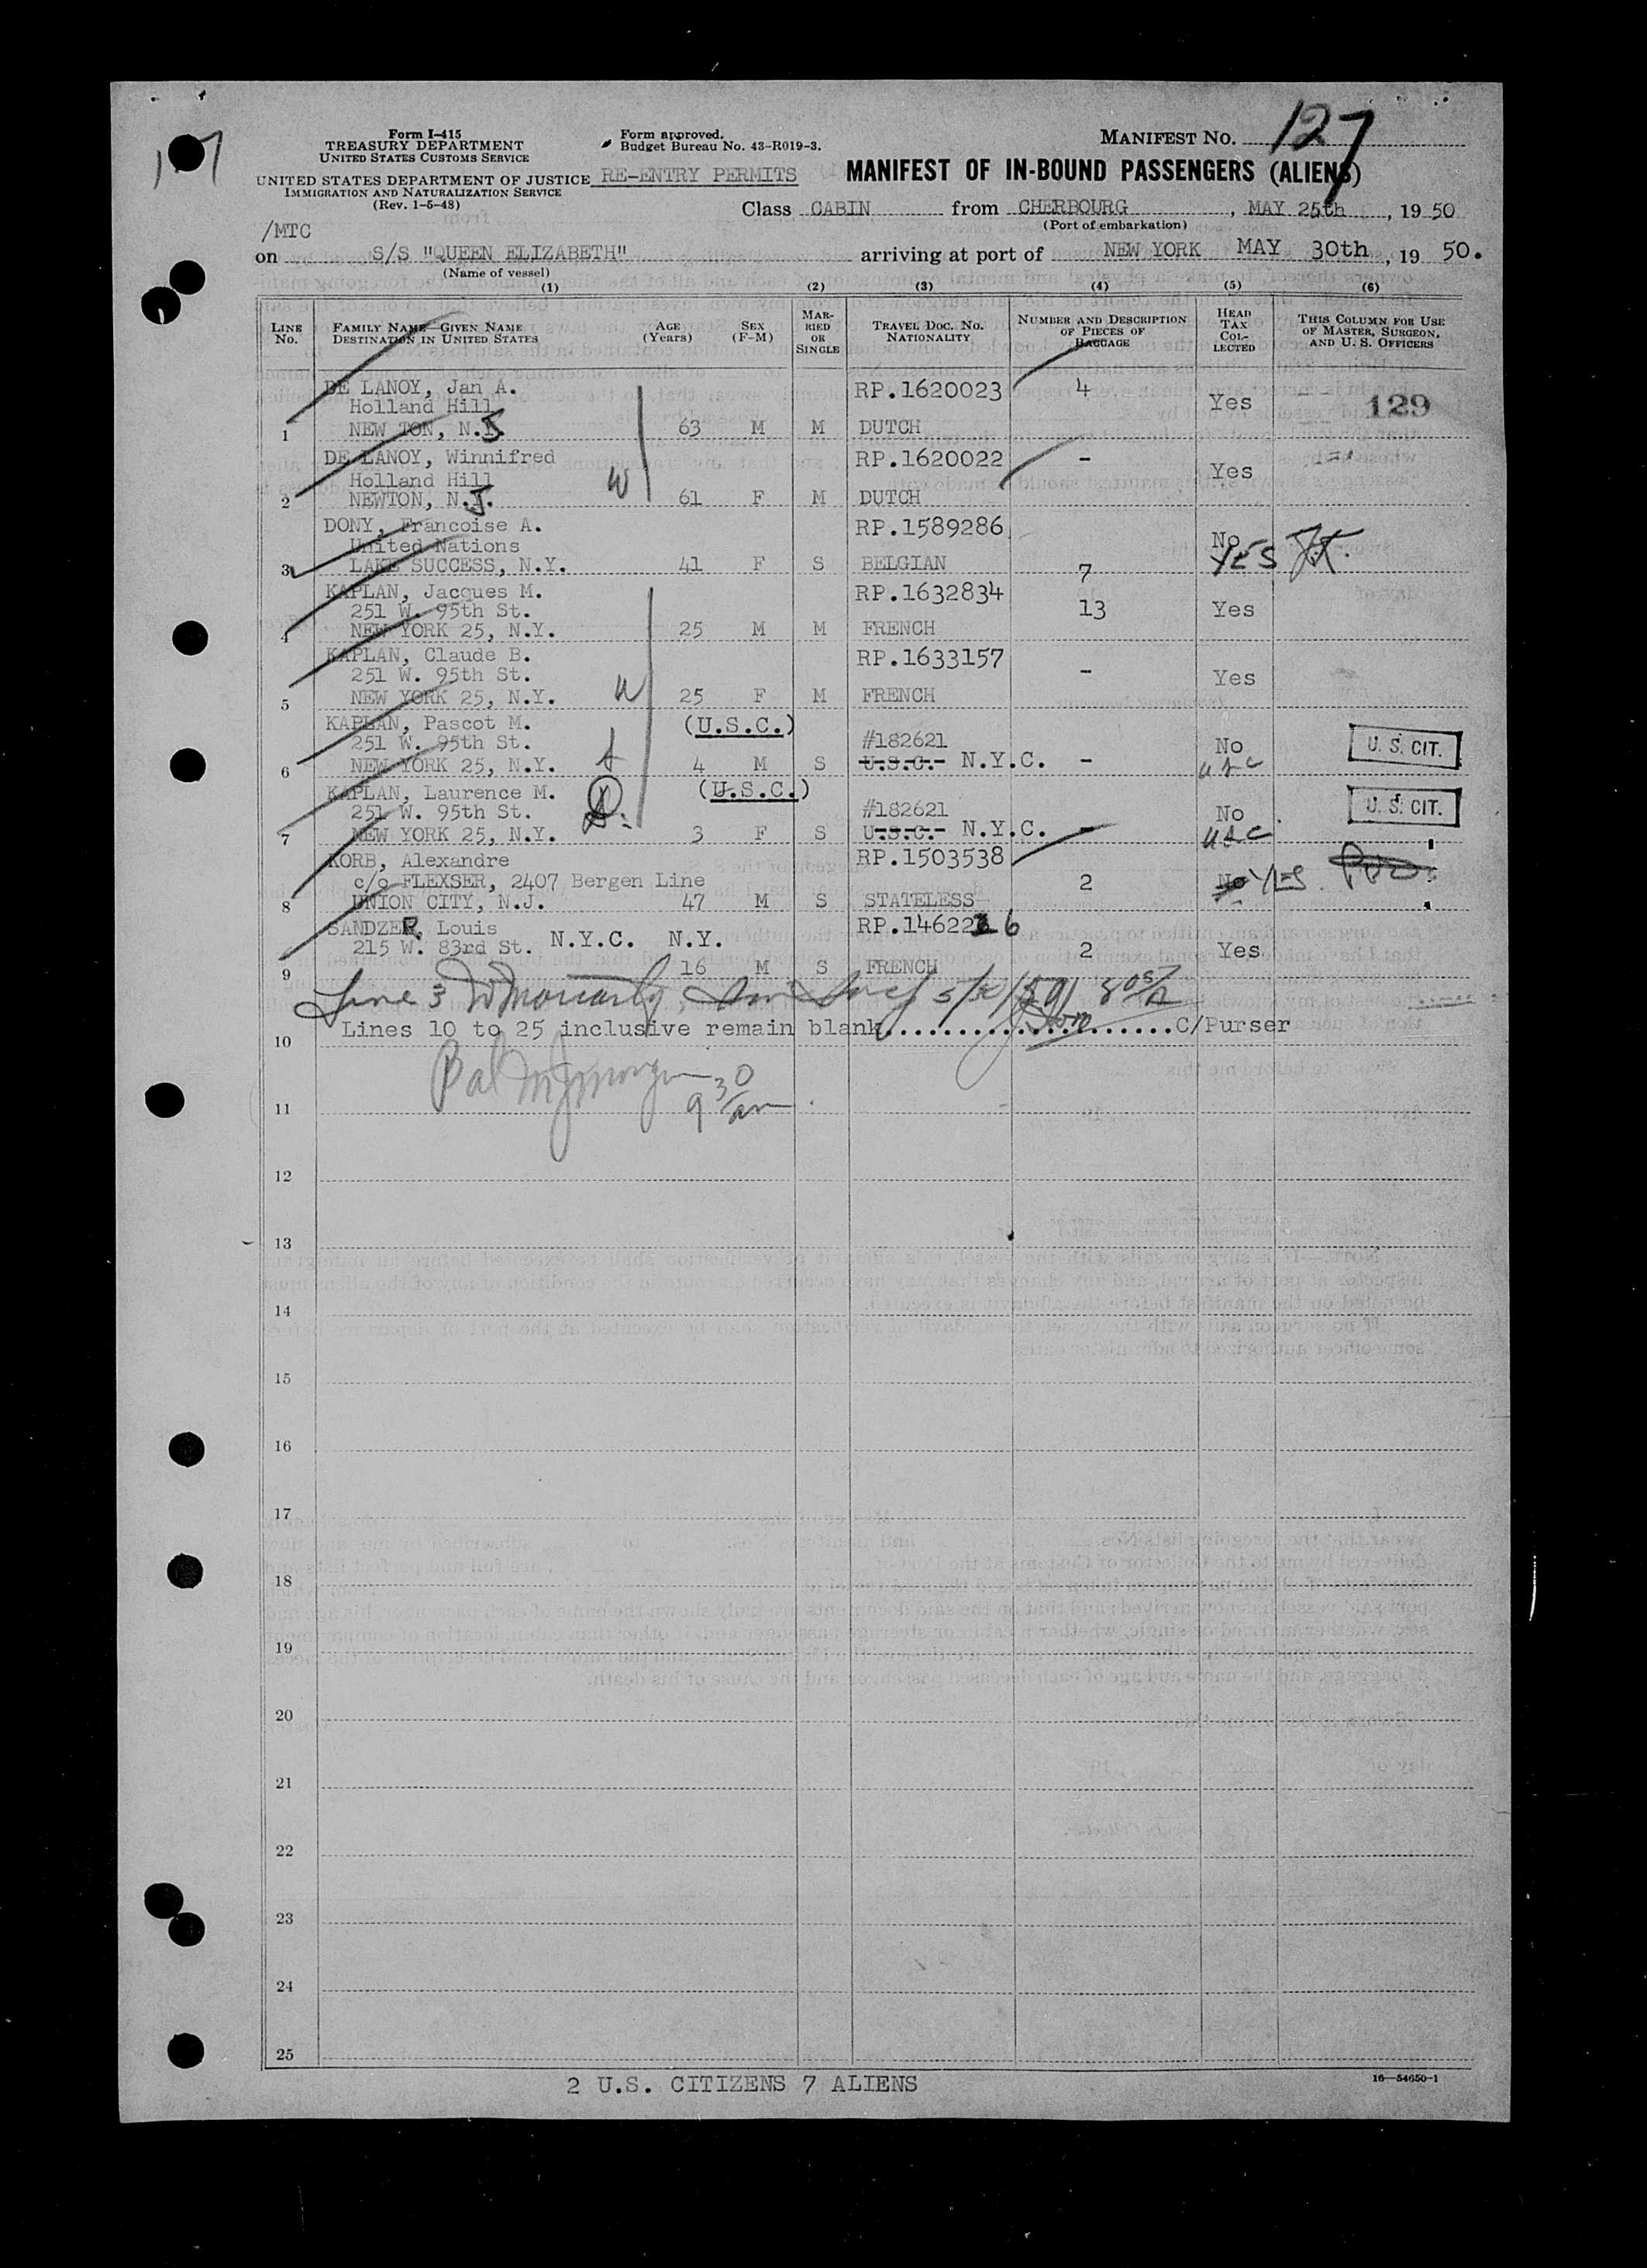 Form I-415
TREASURY DEPARTMENT
UNITED STATES CUSTOMS SERVICE
UNITED STATES DEPARTMENT OF JUSTICE
IMMIGRATION AND NATURALIZATION SERVICE
(Rev. 1-5-48)
Form approved.
Budget Bureau No. 43-R019-3.
RE-ENTRY PERMITS
MANIFEST No. 127
MANIFEST OF IN-BOUND PASSENGERS (ALIENS)
Class CABIN from CHERBOURG, MAY 25th, 1950
(Port of embarkation)
/MTC
on S/S "QUEEN ELIZABETH" arriving at port of NEW YORK MAY 30th, 19 50.
(Name of vessel)
(1) (2) (3) (4) (5) (6)
LINE No. FAMILY NAME—GIVEN NAME DESTINATION IN UNITED STATES AGE (Years) SEX (F-M) MARRIED OR SINGLE TRAVEL DOC. No. NATIONALITY NUMBER AND DESCRIPTION OF PIECES OF BAGGAGE HEAD TAX COLLECTED THIS COLUMN FOR USE OF MASTER, SURGEON, AND U. S. OFFICERS
DE LANOY, Jan A. RP.1620023 4
Holland Hill Yes 129
1 NEW TON, N.J. 63 M M DUTCH
DE LANOY, Winnifred RP.1620022 -
Holland Hill W Yes
2 NEWTON, N.J. 61 F M DUTCH
DONY, Francoise A. RP.1589286
United Nations No
3 LAKE SUCCESS, N.Y. 41 F S BELGIAN 7 YES
KAPLAN, Jacques M. RP.1632834
251 W. 95th St. 13 Yes
4 NEW YORK 25, N.Y. 25 M M FRENCH
KAPLAN, Claude B. RP.1633157
251 W. 95th St. - Yes
5 NEW YORK 25, N.Y. W 25 F M FRENCH
KAPLAN, Pascot M. (U.S.C.)
251 W. 95th St. #182621 No U. S. CIT.
6 NEW YORK 25, N.Y. 4 M S U.S.C.- N.Y.C. - USC
KAPLAN, Laurence M. (U.S.C.)
251 W. 95th St. #182621 No U. S. CIT.
7 NEW YORK 25, N.Y. 3 F S U.S.C.- N.Y.C. - USC
KORB, Alexandre RP.1503538
c/o FLEXSER, 2407 Bergen Line 2 No YES
8 UNION CITY, N.J. 47 M S STATELESS
SANDZER, Louis RP.146226
215 W. 83rd St. N.Y.C. N.Y. 2 Yes
9 16 M S FRENCH
Line 3
Lines 10 to 25 inclusive remain blank......................C/Purser
10
Bal
9 30 am
11
12
13
14
15
16
17
18
19
20
21
22
23
24
25
2 U.S. CITIZENS 7 ALIENS
16—54650-1